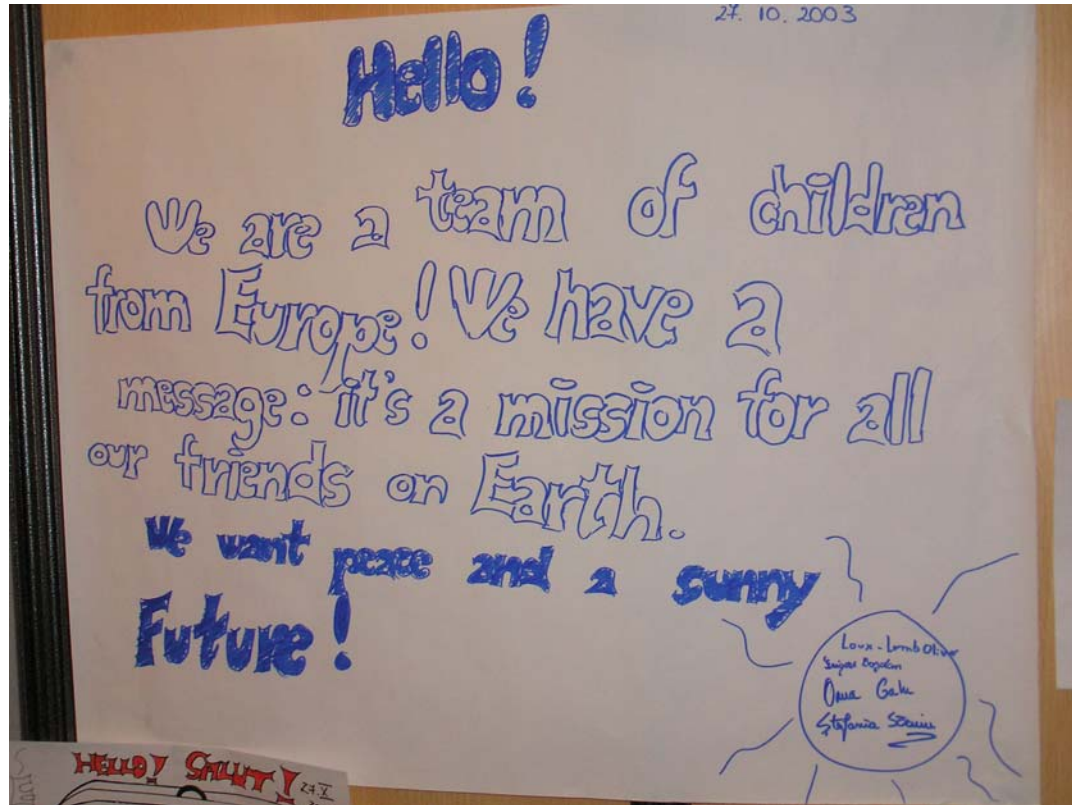 27. 10. 2003
Hello!
We are a team of children
from Europe! We have a
message: it's a mission for all
our friends on Earth.
We want peace and a sunny
Future!
Oliver
Bogdan
Oana
Ştefania
HELLO! SALUT!
27.X